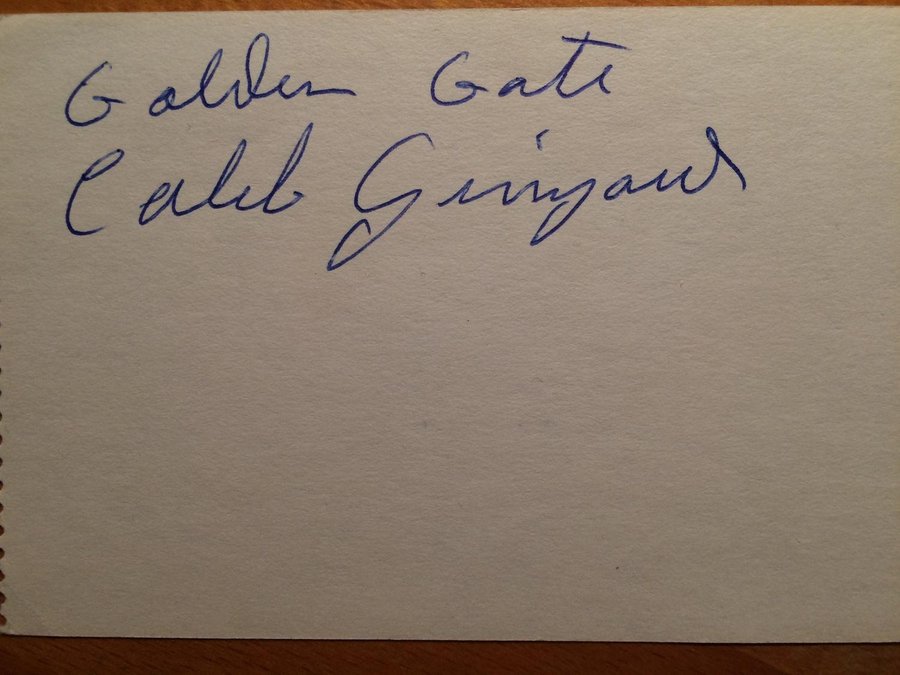 Golden Gate
Caleb Ginyard